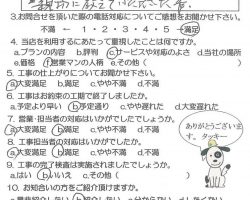 親切に教えていただきました。
3.お問合せを頂いた際の電話対応についてご感想をお聞かせ下さい。
不満 － 1・2・3・4・5 －満足
4. 当店を利用するにあたって重視したことは何ですか。
a.プランの内容 b.評判 c.サービスや対応のよさ d.当社の場所
e.価格 f.営業マンの人柄 e.その他( )
5. 工事の仕上がりについてお聞かせ下さい。
a.大変満足 b.満足 c.やや不満 d.不満
6. 工事はお約束の工期で終了しましたか。
a.予定より早い b.予定通り c.やや遅れた d.大変遅れた
7. 営業・担当者の対応はいかがでしたでしょうか。
a.大変満足 b.満足 c.やや不満 d.不満
8. 工事担当者の対応はいかがでしたでしょうか。
a.大変満足 b.満足 c.やや不満 d.不満
9. 工事の完了検査は実施されましたでしょうか。
a.はい b.いいえ c.その他( )
10. お知合いの方をご紹介頂けますか。
ありがとうございます。タッキー